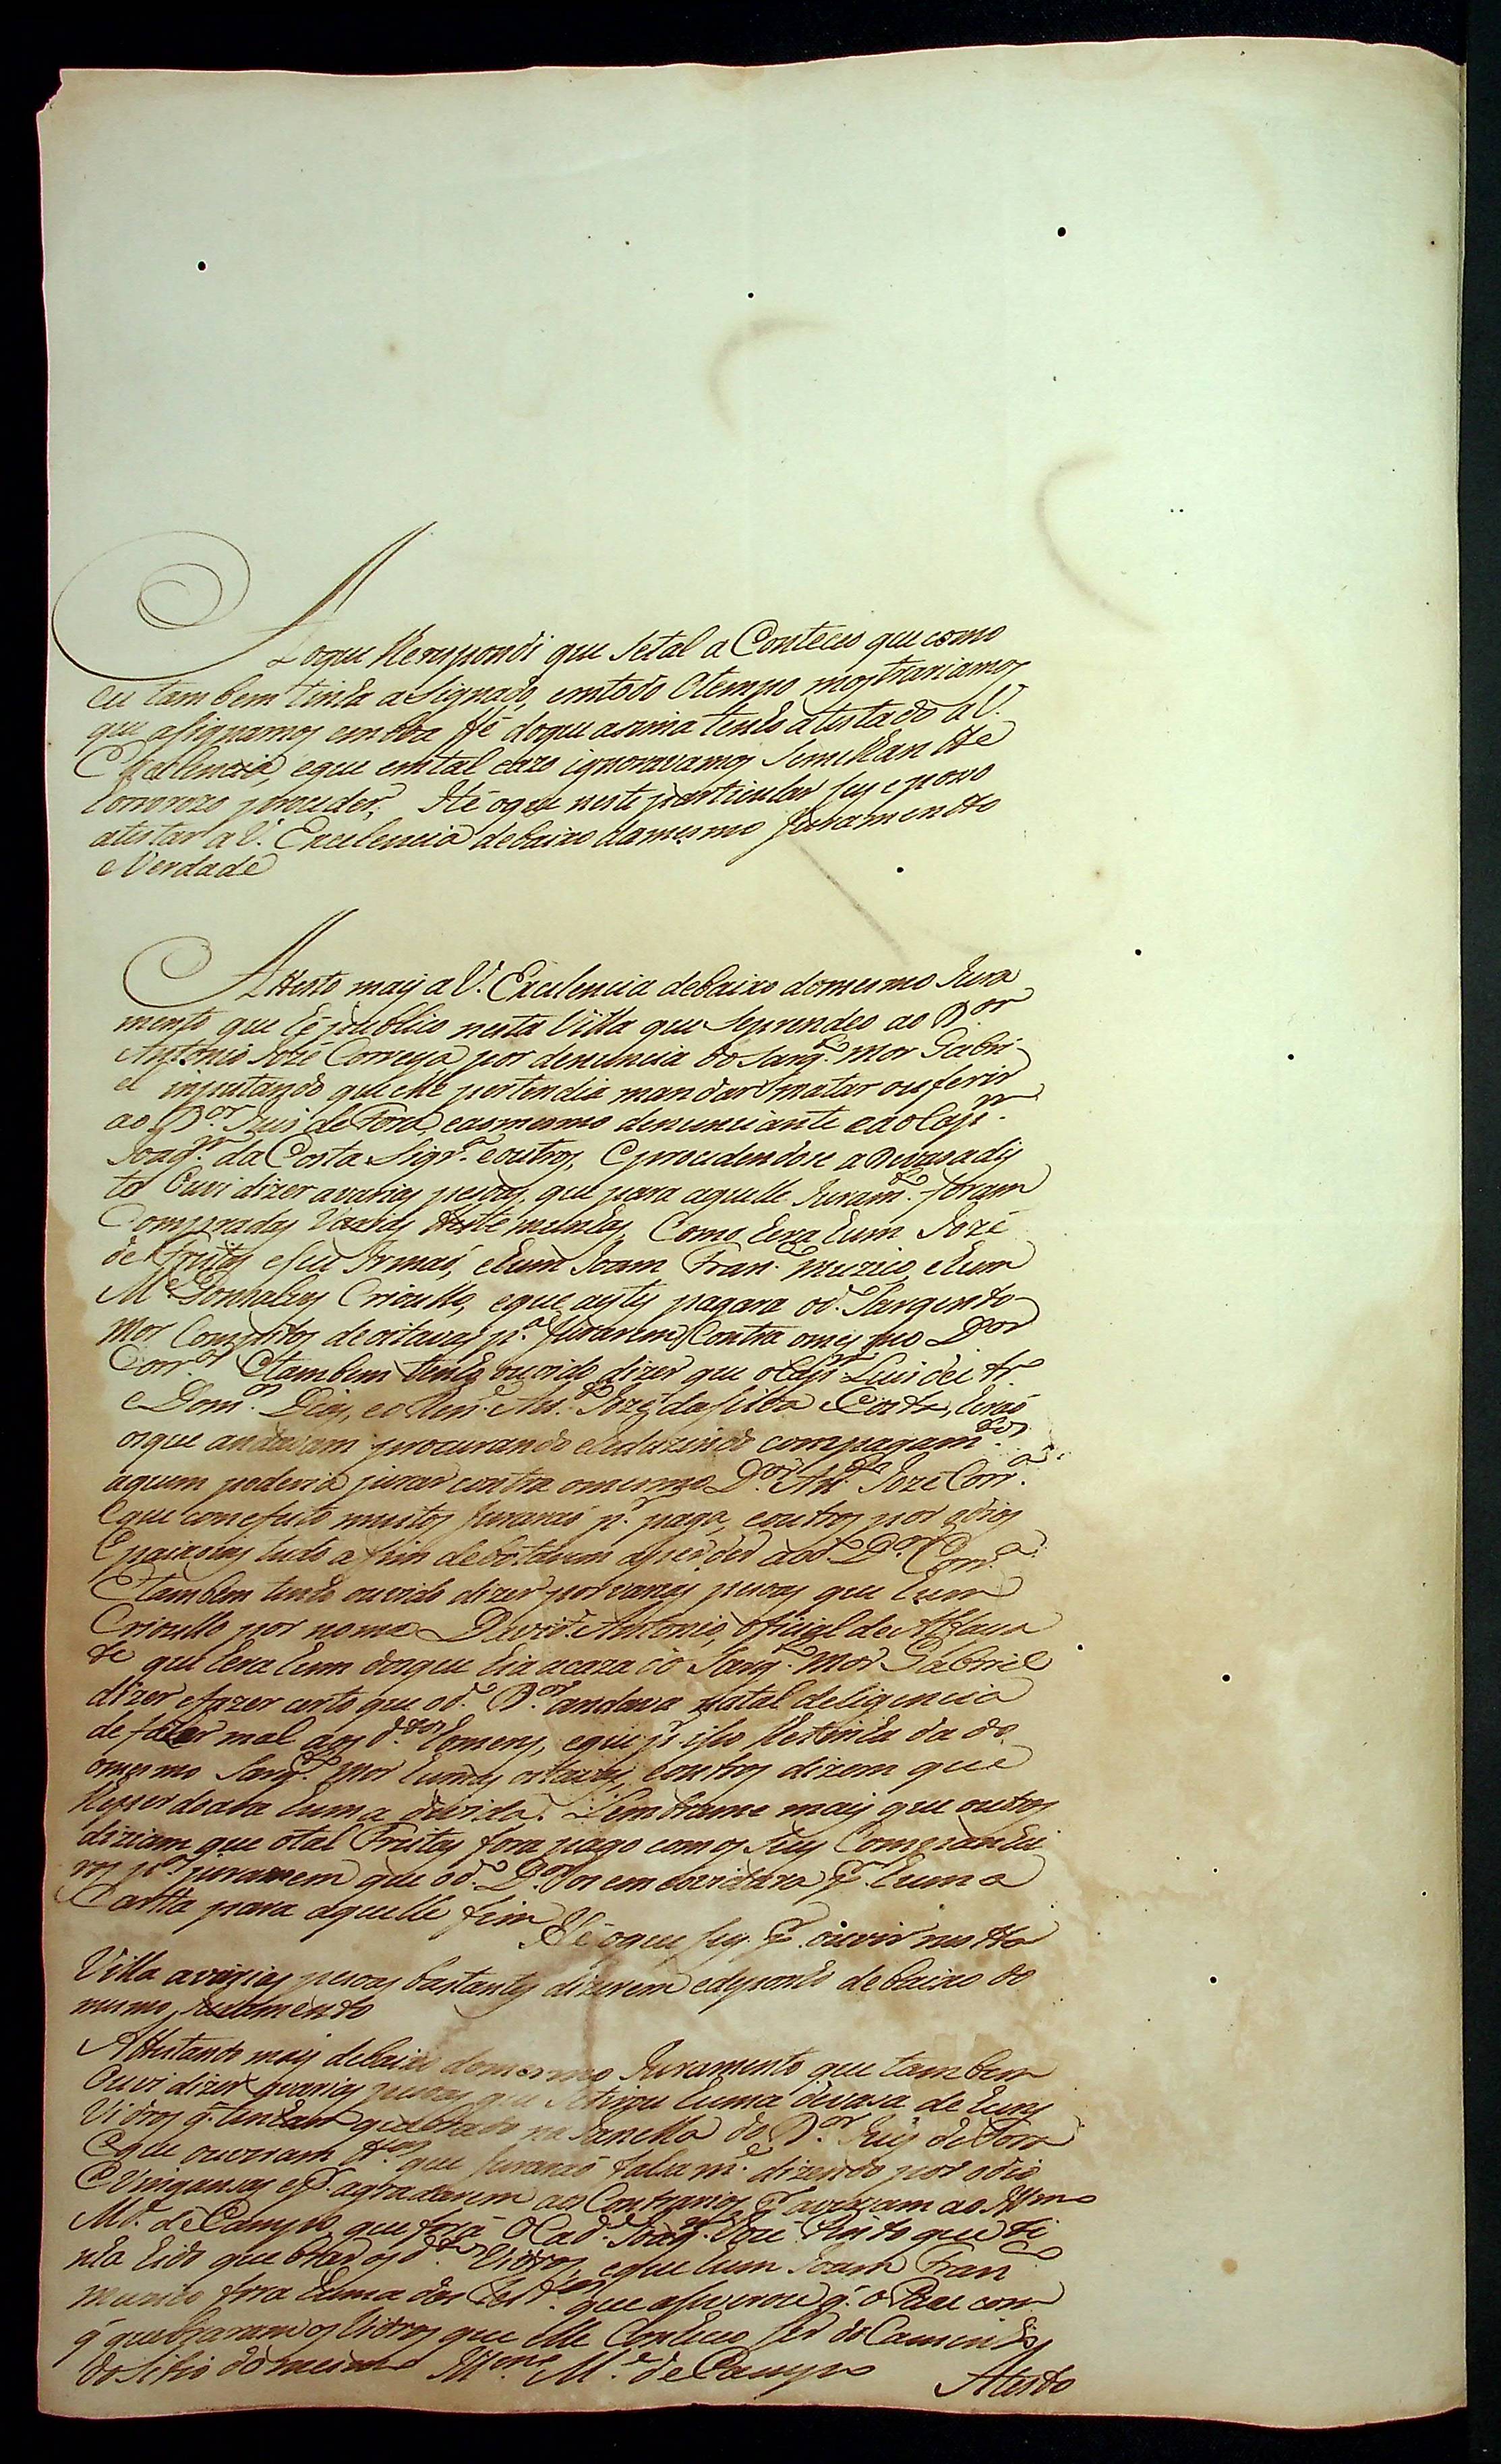 Ao que Respondi que Setal a Conteceo que como
eu tambem tinha asignado, emtodo Otempo mostrariamos
que asignamos emboa fé doque asima tenho atestado a V.
Excelencia, eque emtal cazo ignoravamos Semilhante
horrorozo proceder, Hé oque neste particular sey e poso
atestar a V. Excelencia debaixo damesmo Juramento
e Verdade
Attesto mais a V. Excelencia debaixo domesmo Jura
mento que hé publico nesta Villa que Seprendeo ao D.or
Antonio Jozé Correya por denuncia do Sarg.to Mor Gabri
el inputando que elle pertendia mandar matar ou ferir
ao D.or Juis de Fora, eaomesmo denunciante e ao Cap.m
Joaq.m da Costa Siqr.a e outros, Eprocedendose a Devasa dis
to Ouvi dizer avarias pesoas, que para aquelle Juram.to foram
Compradas Varias testemunhas, Como hera hum Jozé
de Freitas eseu Irmaõ, ehum Joam Fran.co muzico, ehum
M.el Gonsalves Crioullo, eque aestes pagara od.o Sargento
Mor Com oitavas p.a Jurarem Contra omesmo D.or
Corr.a Etambem tenho ouvido dizer que oCap.m Luis de
e Dom.os Dias, eo Ant.o Jozé da Silva Costa, heraõ
osque andavam procurando eSeduzindo compagam.tos
aquem poderia jurar contra omesmo D.or Ant.o Jozé Corr.a
Eque comefeito muitos Juraraõ p.r paga, eoutros por odios
Epaixoens tudo a fim debotarem aperder aod.o D.or Corr.a
Etambem tenho ouvido dizer por varias pesoas que hum
Crioullo por nome David Antonio, Oficial de Alfaya
te que hera hum dosque hia acaza do Sarg.to Mor Gabriel
dizer efazer certo que od.o D.or andava natal deligencia
de fazer mal aos d.tos homens, eque p.r iso lhetinha dado
omesmo Sarg.to Mor humas oitavas, eoutros dizem que
lheperdoara huma divida. Lembrame mais que outros
diziam que otal Freitas fora pago comos seus Companhei
ros p.a jurarem que od.o D.or os emcovidara p.r huma
Cartta para aquelle fim
Hé oque sey p.r ouvir nesta
Villa avarias pesoas bastantes dizerem edeponho debaixo do
mesmo Juramento
Attestando mais debaixo domesmo Juramento que tambem
Ouvi dizer avarias pesoas que Setirou huma devasa de huns
Vidros q. tinham quebrado na Janella do D.or Juis de Fora
Eque ouveram que Juraraõ falsam.te dizendo por odio
EVingansas e p.r agradarem aos Contrarios q. aviziam ao Alm.o
M.el de Campos que fora OCad.e Joaq.m Jozé Pinto que ti
nha hido quebrar os d.tos Vidros, eque hum Joam Fran.co
muzico fora huma das Test.as que asevirou q. o Pau com
q. quebraram os Vidros que elle Conheceo ser do Caminho
do Sitio do mesmo M.el de Campos
Atesto